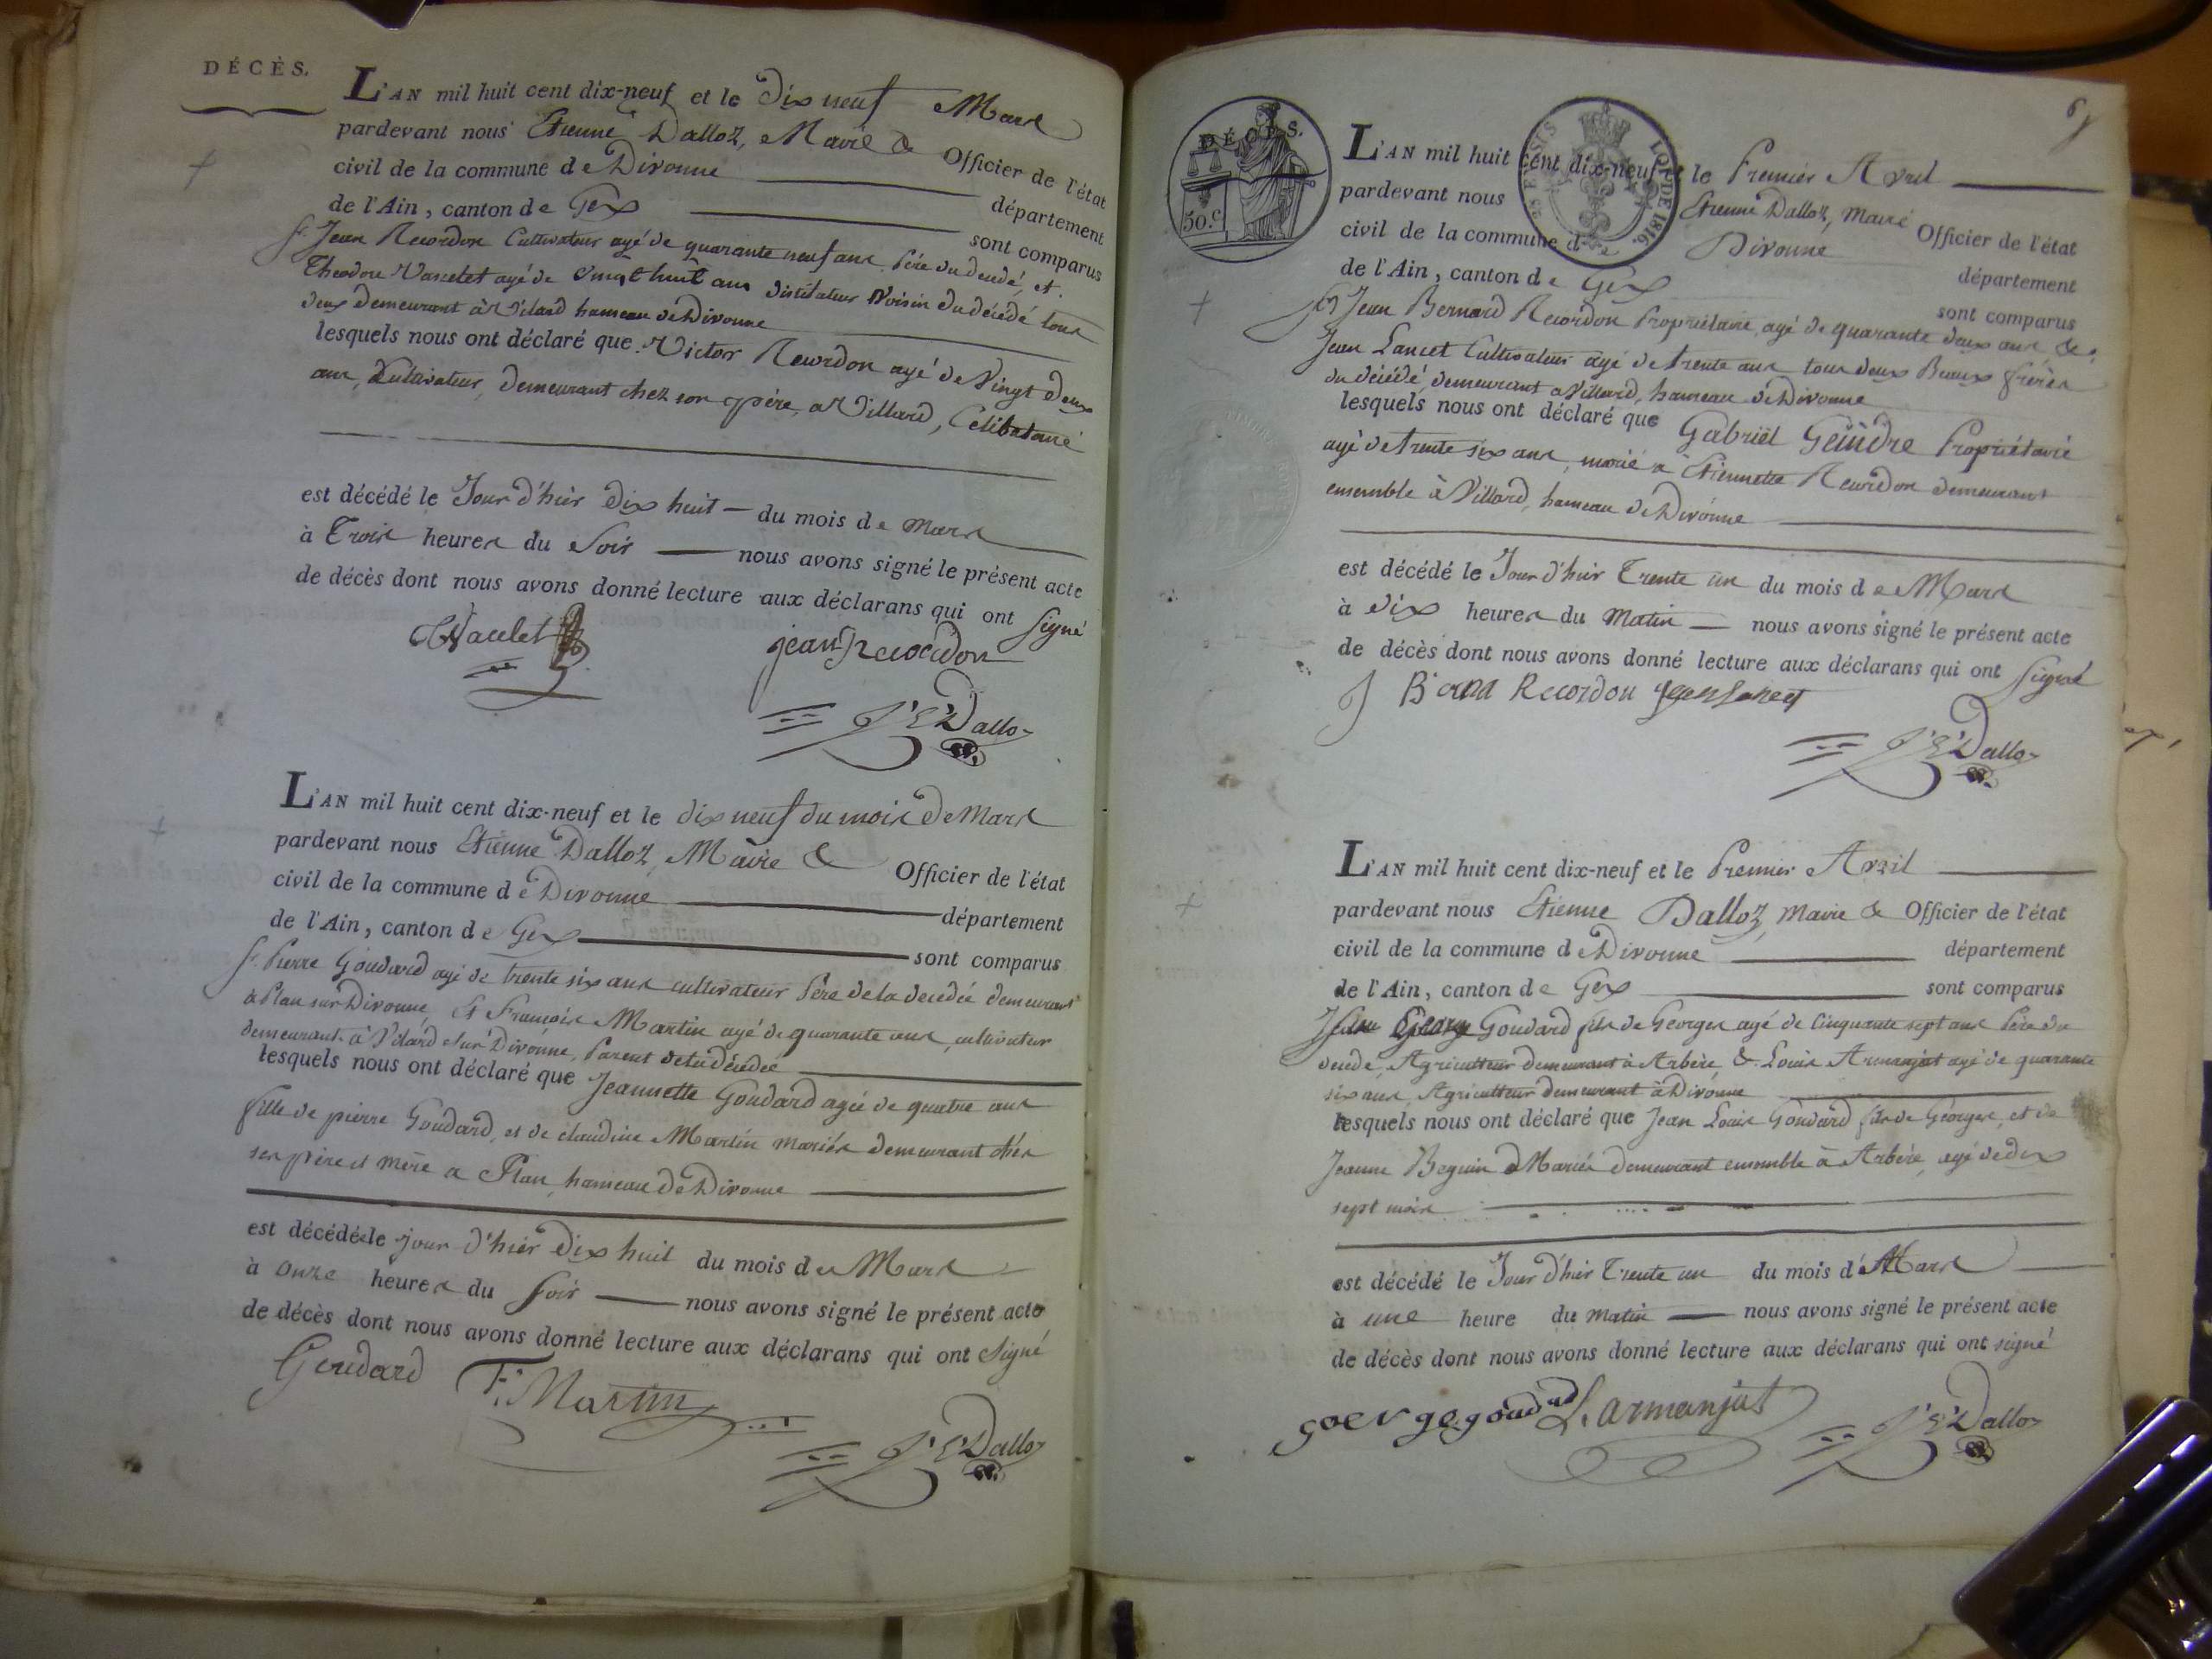 DÉCÈS.
L'AN mil huit cent dix-neuf et le Dix neuf Mars
pardevant nous Etienne Dalloz, Maire & Officier de l'état
civil de la commune de Divonne département
de l'Ain, canton de Gex sont comparus
Sr. Jean Recordon Cultivateur agé de quarante neuf ans Père du decedé, et
Theodore Vaucelet agé de Vingt huit ans Voisin du décédé tous
deux demeurant à Vilard hameau de Divonne
lesquels nous ont déclaré que Victor Recordon agé de Vingt deux
ans, Cultivateur, demeurant chez son père, a Villard, Célibataire
est décédé le Jour d'hier Dix huit du mois de Mars
à Trois heures du Soir nous avons signé le présent acte
de décès dont nous avons donné lecture aux déclarans qui ont Signé
jean Recordon
J. E. Dalloz
L'AN mil huit cent dix-neuf et le dix neuf du mois de Mars
pardevant nous Etienne Dalloz, Maire & Officier de l'état
civil de la commune de Divonne département
de l'Ain, canton de Gex sont comparus
Sr. Pierre Goudard agé de trente six ans cultivateur Père de la decedée demeurant
à Plan sur Divonne, Et François Martin agé de quarante ans, cultivateur
demeurant à Vilard sur Divonne, Parent de la décédée
lesquels nous ont déclaré que Jeannette Goudard agée de quatre ans
fille de pierre Goudard, et de claudine Martin mariés demeurant chés
ses père et mère a Plan, hameau de Divonne
est décédée le jour d'hier Dix huit du mois de Mars
à onze heures du Soir nous avons signé le présent acte
de décès dont nous avons donné lecture aux déclarans qui ont Signé
Goudard F. Martin
J. E. Dalloz
6
DÉCÈS.
50.c
LOI DE 1816.
L'AN mil huit cent dix-neuf et le Premier Avril
pardevant nous Etienne Dalloz, Maire Officier de l'état
civil de la commune de Divonne département
de l'Ain, canton de Gex sont comparus
Jean Bernard Recordon Propriétaire, agé de quarante deux ans, &
Jean Lancet Cultivateur agé de trente ans tous deux Beaux frères
du décédé, demeurant a Villard, hameau de Divonne
lesquels nous ont déclaré que Gabriël Geindre Propriétaire
agé de trente six ans, marié a Etiennette Recordon demeurant
ensemble à Villard, hameau de Divonne
est décédé le Jour d'hier Trente un du mois de Mars
à dix heures du Matin nous avons signé le présent acte
de décès dont nous avons donné lecture aux déclarans qui ont Signé
J Recordon
J. E. Dalloz
L'AN mil huit cent dix-neuf et le Premier Avril
pardevant nous Etienne Dalloz, Maire & Officier de l'état
civil de la commune de Divonne département
de l'Ain, canton de Gex sont comparus
Goudard fils de Georges agé de Cinquante sept ans Père du
decedé, Agriculteur demeurant à Arbère, & Louis Armanjat agé de quarante
six ans, Agriculteur demeurant à Divonne
lesquels nous ont déclaré que Jean Louis Goudard fils de Georges, et de
Jeanne Beguin Mariés demeurant ensemble à Arbère, agé de dix
sept mois
est décédé le Jour d'hier Trente un du mois de Mars
à une heure du matin nous avons signé le présent acte
de décès dont nous avons donné lecture aux déclarans qui ont signé
goerge goudard L. armanjat
J. E. Dalloz